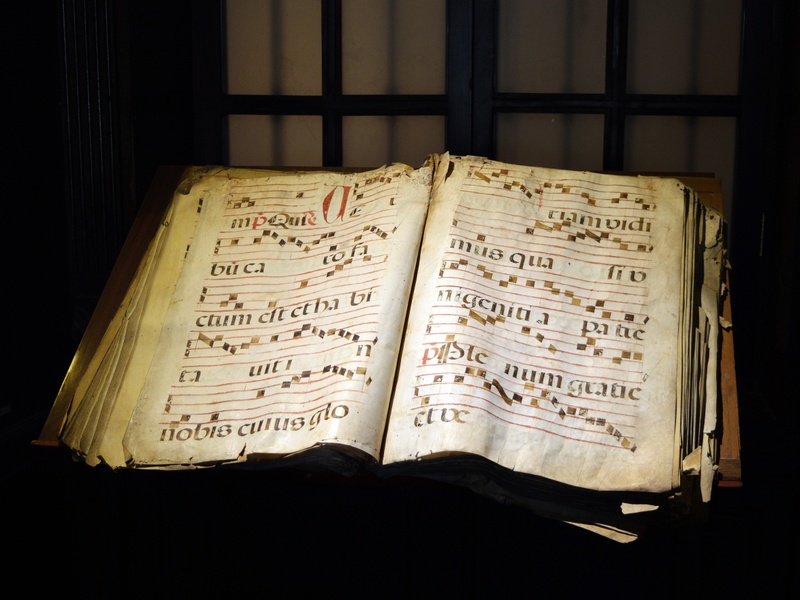 bū ca ro fa
ctum est et ha bi
ta uit i n
nobis cuius glo
riam vidi
mus qua si v
nigeniti a pa tre
ple num gratie
et ve